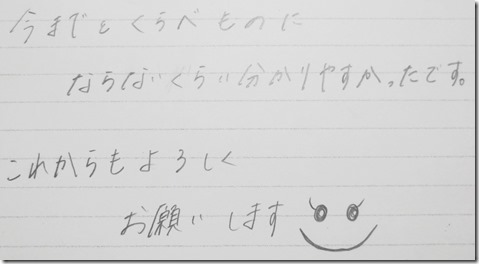 今までとくらべものに
ならないくらい分かりやすかったです。
これからもよろしく
お願いします